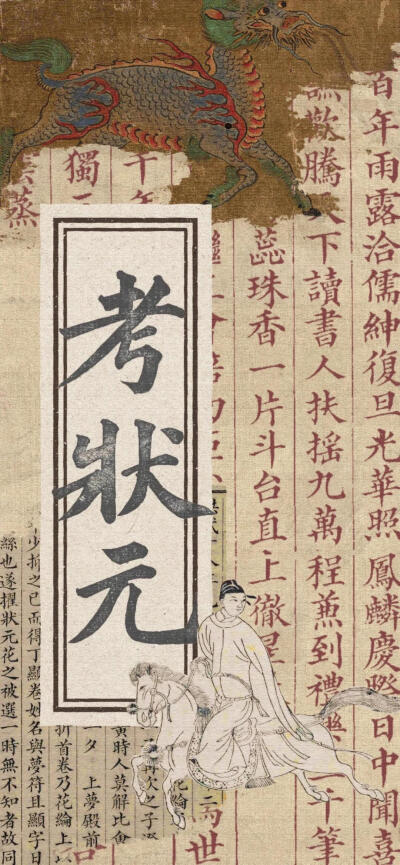 百年雨露洽儒紳復旦光華照鳳麟慶際日中聞喜
歡騰下讀書人扶搖九萬程兼到禮千筆
蕊珠香一片斗台直上徹星
千
獨
蒸
考狀元
世
二
花綸
次之子
黃時人莫解比會
一夕 上夢殿前
折首卷乃花綸上
少折之已而得丁顯卷姓名與夢符且顯字日
絲也遂擢狀元花之被選一時無不知者故同